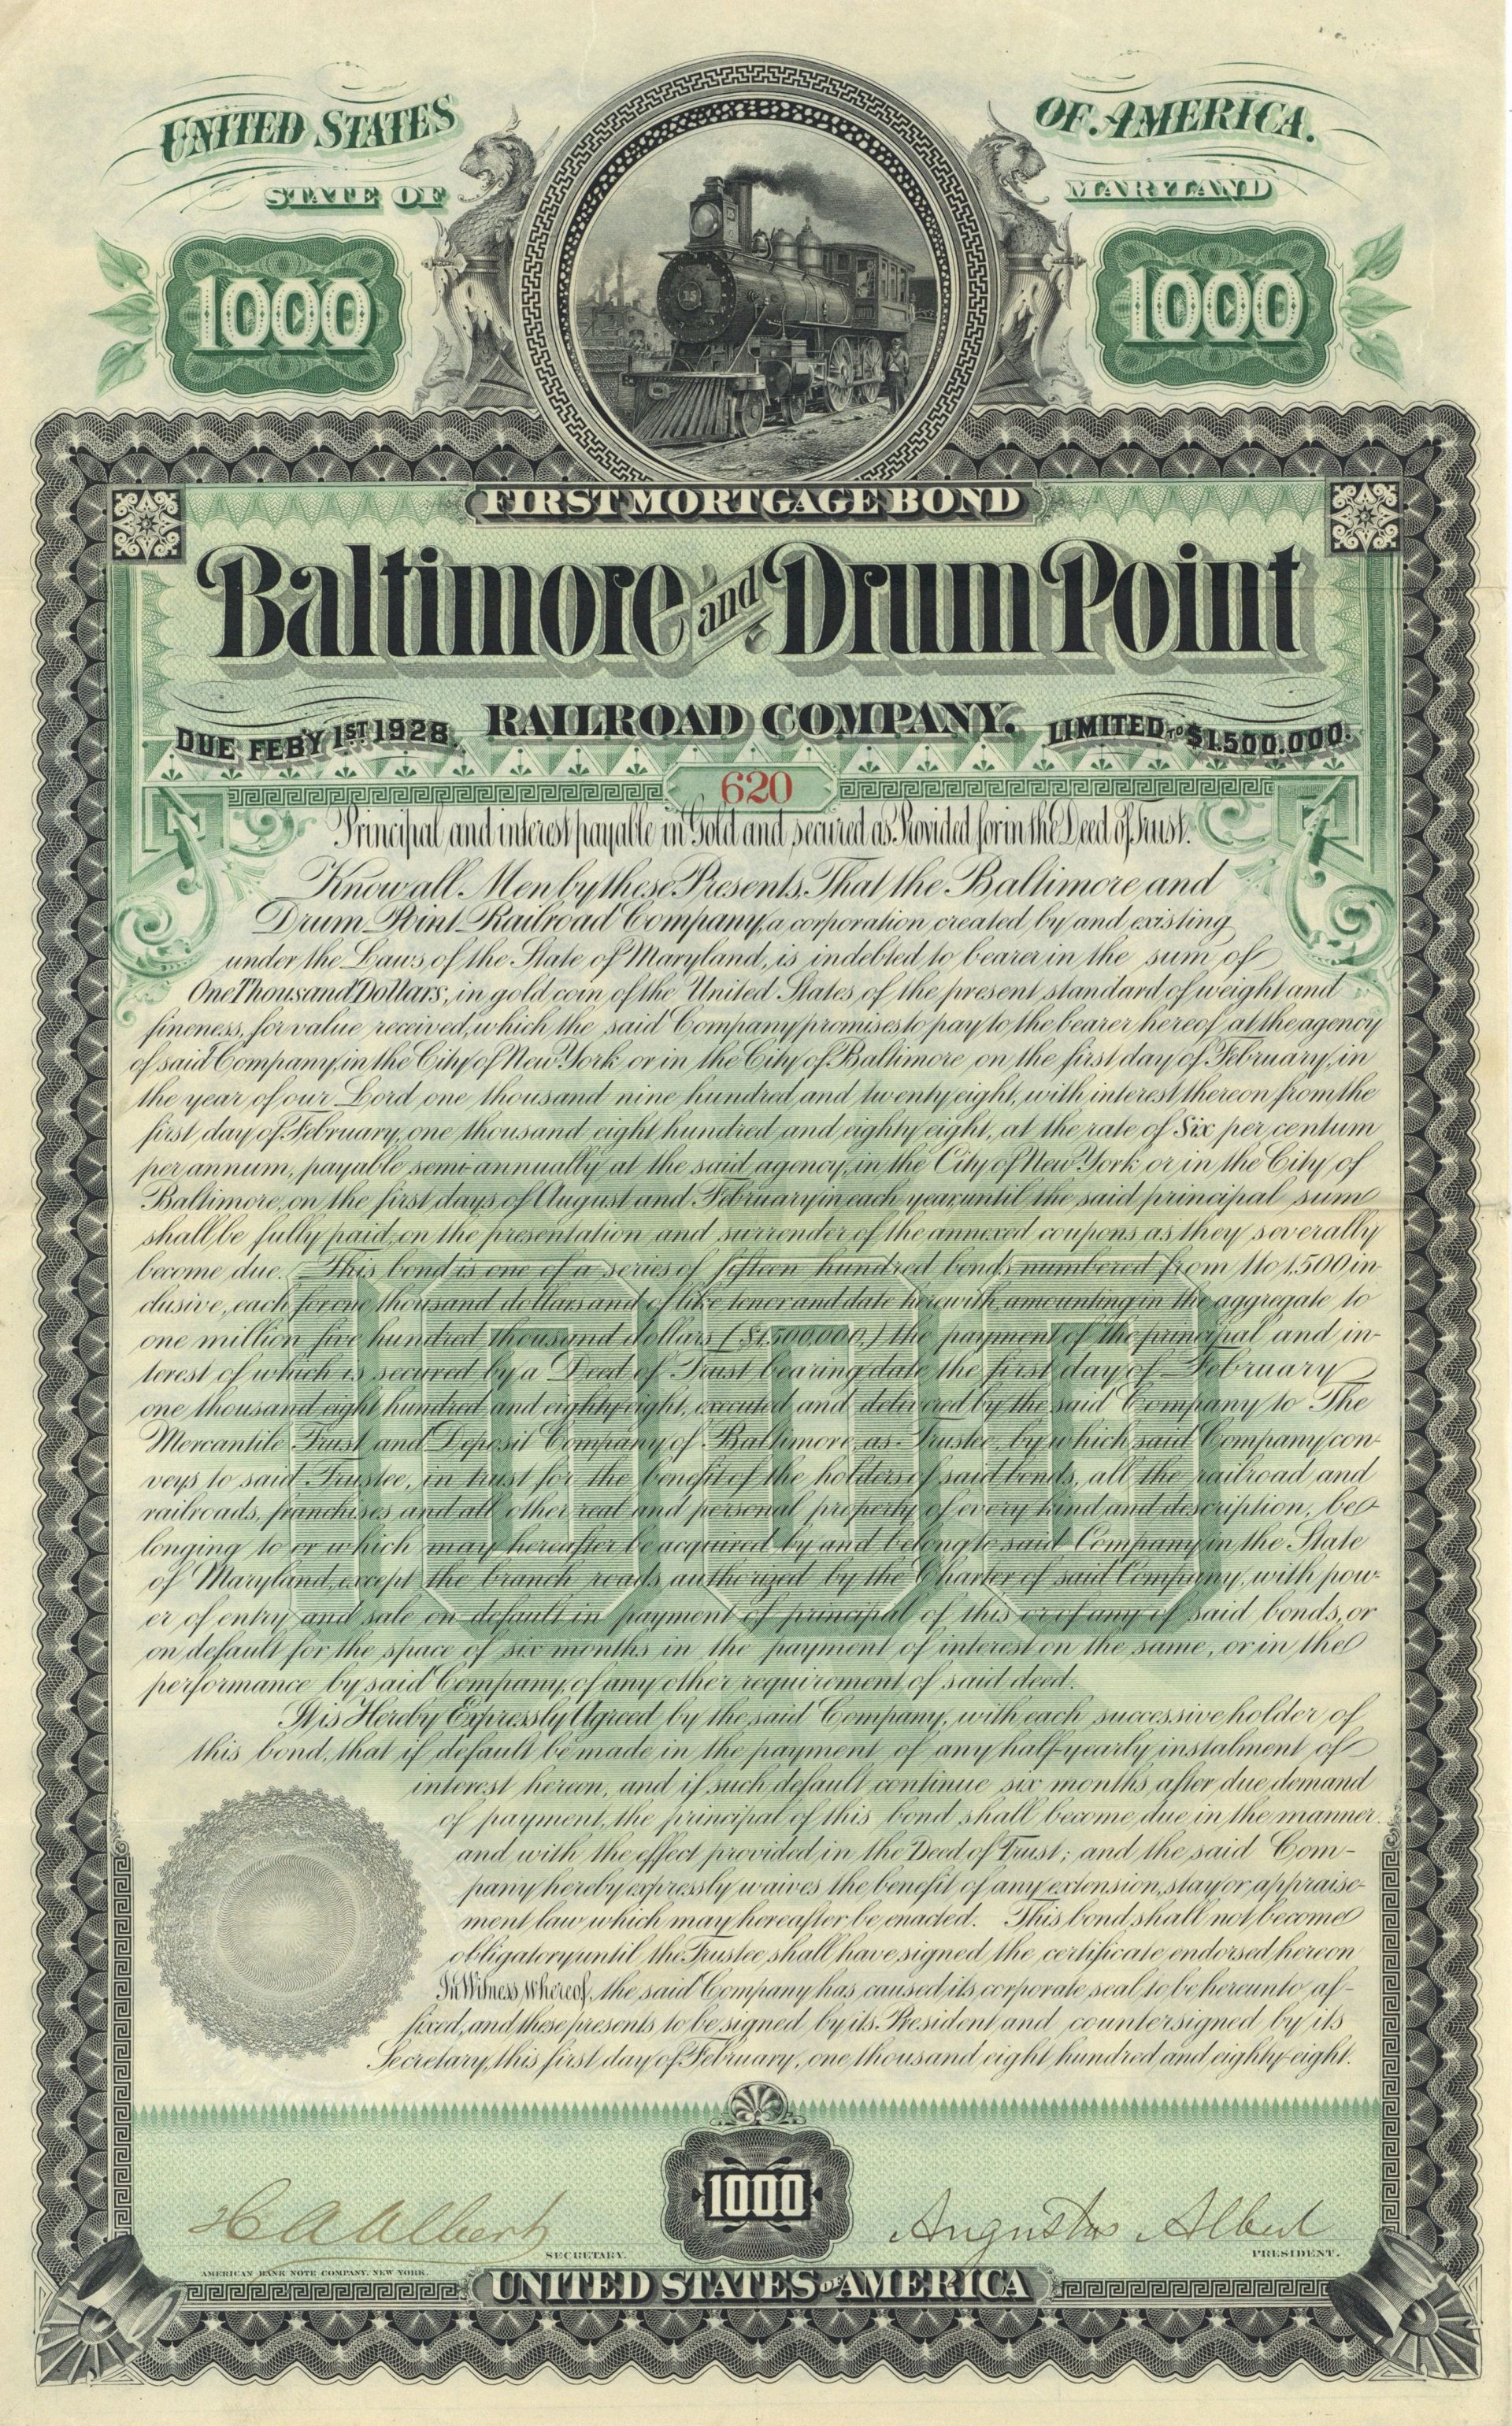 UNITED STATES OF AMERICA.
STATE OF MARYLAND
1000 1000
FIRST MORTGAGE BOND
Baltimore and Drum Point
RAILROAD COMPANY.
DUE FEB'Y 1ST 1928. LIMITED TO $1,500,000.
620
Principal and interest payable in Gold and secured as Provided for in the Deed of Trust.
Know all Men by these Presents, That the Baltimore and
Drum Point Railroad Company, a corporation created by and existing
under the Laws of the State of Maryland, is indebted to bearer in the sum of
One Thousand Dollars, in gold coin of the United States of the present standard of weight and
fineness, for value received, which the said Company promises to pay to the bearer hereof, at the agency
of said Company, in the City of New York or in the City of Baltimore on the first day of February, in
the year of our Lord one thousand nine hundred and twenty eight, with interest thereon from the
first day of February, one thousand eight hundred and eighty eight, at the rate of Six per centum
per annum, payable semi-annually at the said agency, in the City of New York or in the City of
Baltimore, on the first days of August and February in each year, until the said principal sum
shall be fully paid, on the presentation and surrender of the annexed coupons as they severally
become due. This bond is one of a series of fifteen hundred bonds numbered from 1 to 1,500 in-
clusive, each for one thousand dollars and of like tenor and date herewith, amounting in the aggregate to
one million five hundred thousand dollars ($1,500,000.) the payment of the principal and in-
terest of which is secured by a Deed of Trust bearing date the first day of February
one thousand eight hundred and eighty eight, executed and delivered by the said Company to The
Mercantile Trust and Deposit Company of Baltimore, as Trustee, by which said Company con-
veys to said Trustee, in trust for the benefit of the holders of said bonds, all the railroad and
railroads, franchises and all other real and personal property of every kind and description, be-
longing to or which may hereafter be acquired by and belong to said Company in the State
of Maryland, except the branch roads authorized by the Charter of said Company, with pow-
er of entry and sale on default in payment of principal of this or of any of said bonds, or
on default for the space of six months in the payment of interest on the same, or in the
performance by said Company, of any other requirement of said deed.
It is Hereby Expressly Agreed by the said Company, with each successive holder of
this bond, that if default be made in the payment of any half-yearly instalment of
interest hereon, and if such default continue six months after due demand
of payment, the principal of this bond shall become due in the manner
and with the effect provided in the Deed of Trust; and the said Com-
pany hereby expressly waives the benefit of any extension, stay or appraise-
ment law which may hereafter be enacted. This bond shall not become
obligatory until the Trustee shall have signed the certificate endorsed hereon
In Witness whereof, the said Company has caused its corporate seal to be hereunto af-
fixed, and these presents to be signed by its President and countersigned by its
Secretary, this first day of February, one thousand eight hundred and eighty-eight.
1000
H A Albert Augustus Albert
SECRETARY. PRESIDENT.
AMERICAN BANK NOTE COMPANY, NEW YORK.
UNITED STATES OF AMERICA